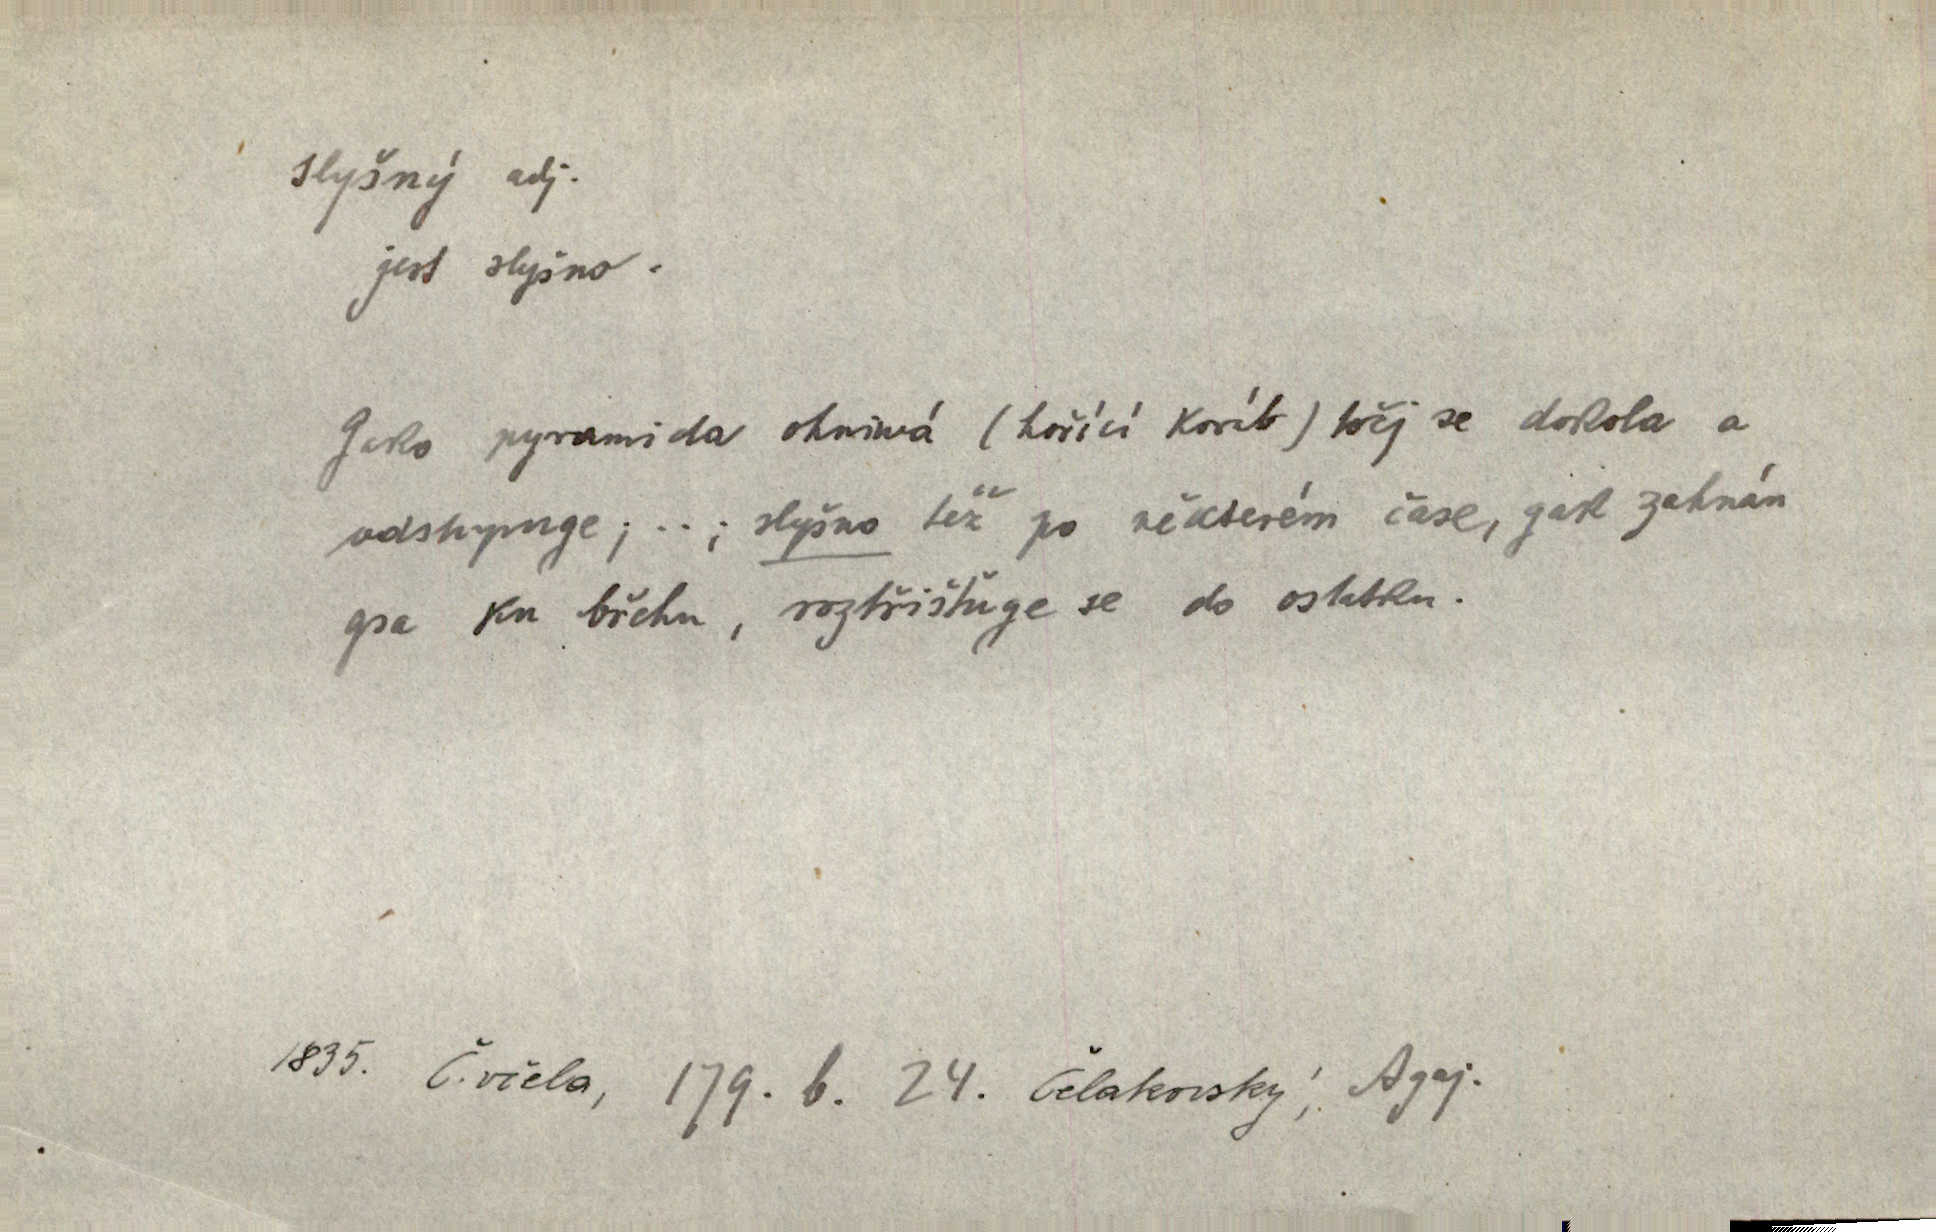 slyšný adj.
jest slyšno.
Jako pyramida ohniwá (hořící koráb) točj se dokola a
odstupuge; ..; slyšno též po některém čase, gak zahnán
gsa ku břehu, roztřišťuge se do ostatku.
1835. Č. včela, 179. b. 24. Čelakovský, Agaj.